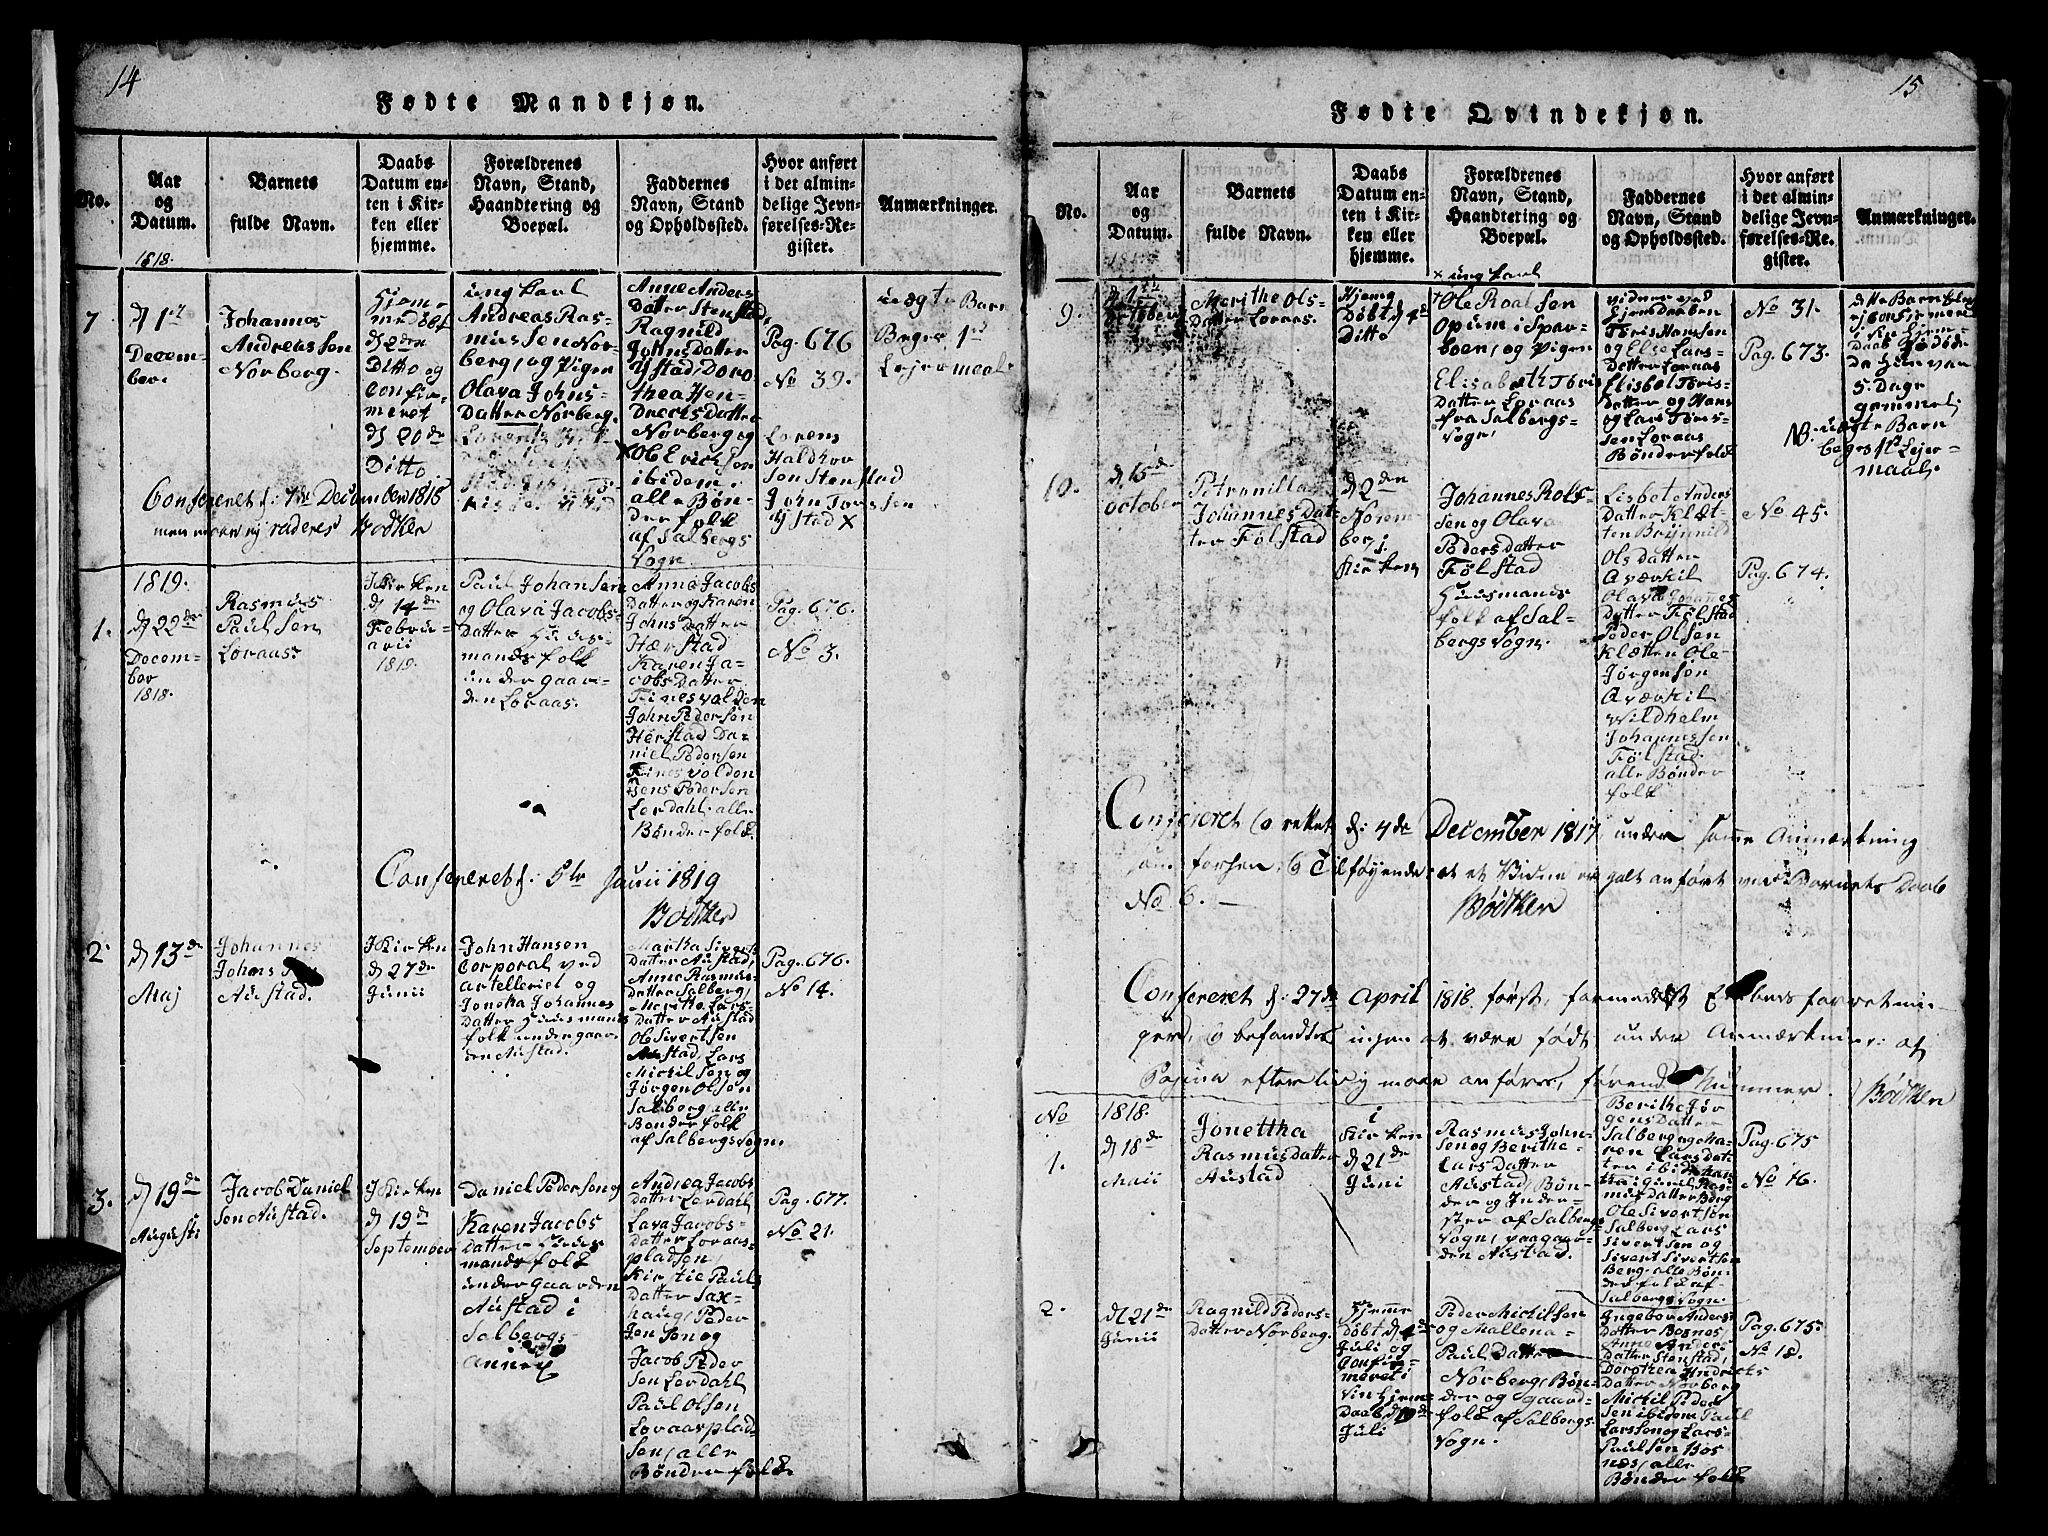 14
Fødte Mandkjøn.
No.
Aar
og
Datum.
Barnets
fulde Navn.
Daabs
Datum en-
ten i Kir-
ken eller
hjemme.
Forældrenes
Navn, Stand,
Haandtering og
Boepæl.
Faddernes
Navn, Stand
og Opholdssted.
Hvor anført
i det almin-
delige Jevn-
førelses-Re-
gister.
Anmærkninger.
1818.
7
d 1st
Decem-
ber.
Johannes
Andreassen
Norberg.
Hjem-
medöbt
d 2den
Ditto og
Confir-
meret
d 20de
Ditto
ung karl
Andreas Ras-
mussen Nor-
berg, og Pigen
Olava Johns-
Datter Norberg.
Anne Anders
Datter Stenstad,
Ragnild
Johns Datter
Ystad, Doro
thea Hen-
drichs Datter
Norberg og
Ole Ericksen
ibidem.
alle Bøn-
der folk
af Salbergs
Vogn
Pag. 676
No 39.
Lorens
Haldhor
sen Stenstad
John Torssen
Ystad X
uægte Barn
Begge 1st
Leiermaal.
Conferеret d: 7de December 1818
Bödtker
1819.
1.
d 22de
Decem-
ber
1818.
Rasmus
Paulsen
Loraas
I Kirken
d 14de
Febru-
arii
1819.
Paul Johansen
og Olava Jacobs-
Datter Huus-
mandsfolk
under gaar-
den Loraas.
Anne Jacobs
Datter og Karen
Johns Datter
Hærstad
Karen Ja-
cobs Datter
Finesvolden
John Pedersen
Herstad Da-
niel Pedersen
Finesvolden
Jens Pedersen
Lerdahl. alle
Bønder folk.
Pag. 676.
No 3.
Confereret d: 5te Junii 1819
Bödtker
2.
d 13de
Maj
Johannes
Johns
Austad.
I Kirken
d 27de
Junii
John Hansen
Corporal ved
artelleriet og
Joneta Johannes
Datter Huusmands
folk under gaar-
den Austad.
Martha Siverts
Datter Austad,
Anne Rasmus-
Datter Salberg,
Meritte Lars
Datter Austad
Ole Sivertsen
Austad, Lars
Michilsen og
Jörgen Olsen
Salberg alle
Bønderfolk
af Salbergs Vogn
Pag. 676.
No 14.
3.
d 19de
Augusti
Jacob Daniel
sen Austad.
I Kirken
d 19de
September
Daniel Pedersen og
Karen Jacobs
Datter Huus
mandsfolk
under gaarden
Austad i
Salbergs
annex
Andrea Jacobs
Datter Lerdahl
Lava Jacobs-
Datter Loraas-
pladsen,
Kirstie Pauls
Datter Sax-
haug, Peder
Jensen og
Jacob Peder
sen Lerdahl
Paul Olsen
Loraasplad-
sen, alle
Bønder folk
Pag. 677.
No 21.
15
Fødte Qvindekjøn.
No.
Aar
og
Datum.
Barnets
fulde Navn.
Daabs
Datum en-
ten i Kir-
ken eller
hjemme.
Forældrenes
Navn, Stand,
Haandtering og
Boepæl.
Faddernes
Navn, Stand
og Opholdssted.
Hvor anført
i det almin-
delige Jevn-
førelses-Re-
gister.
Anmærkninger.
9.
Merithe Ols-
Datter Loraas.
Hjeme
Döbt d 4de
Ditto
ung karl
Ole Roalsen
Opum i Spar-
boen, og Pigen
Elisabeth Toris
Datter Loraas
fra Salbergs-
Vogn
vidner ved
hjem Daaben
Toris Hansen
og Else Lars-
Datter Loraas
Elisbet Toris-
Datter og Hans
og Lars Toris-
sen Loraas
Bönderfolk
No 31.
Pag. 673.
5. Dage
gammel
NB. uægte Barn
begge 1st Leier-
maal.
10.
d 15de
October
Petronilla
Johannes Dat-
ter Fölstad
d 2den
Novem-
ber, i
Kirken
Johannes Rolf-
sen og Olava
Peders Datter
Fölstad
Huusmands
folk af Sal-
bergs Vogn,
Lisbet Anders
Datter Klæt-
ten Brynnild
Ols Datter
Aværkil
Olava Johannes
Datter Fölstad
Peder Olsen
Klætten Ole
Jörgensen
Aværkil
Wildhelm
Johannessen
Fölstad
alle Bønder
folk
No 45.
Pag. 674.
Confereret d: 4de December 1817 under samme Anmærkning
No 6. —
Bödtker
Confereret d: 27de April 1818
Bödtker
No
1.
1818.
d 18de
Maii
Jonettha
Rasmus Datter
Austad
i
Kirken
d 21de
Juni
Rasmus John-
sen og Berithe
Lars Datter
Austad, Bøn-
der og Inder-
ster af Salbergs
Vogn, paa gaar-
den Austad.
Berithe Jör
gens Datter
Salberg og Ma-
ren Lars Dat-
ter ibid:
Gunil Ras-
mus Datter Berg
Ole Sivertsen
Salberg Lars
Sivertsen og
Sivert Sivertsen
Berg. alle Bøn-
der folk af
Salbergs Vogn.
Pag. 675
No 16.
2.
d 21de
Junii
Ragnild Peders-
Datter Norberg.
Hjemme
Döbt d 4de
Juli og
Confir-
meret i
Sin Hjem-
Daab, d 19de
Juli
Peder Michilsen
og Mallena-
Paul Datter
Norberg, Bøn-
der og gaard-
folk af Salbergs
Vogn.
Ingebor Anders-
Datter Bosnes,
Anne Anders
Datter Stenstad,
Dorothea Hendrichs
Datter Norberg
Michil Peder
sen ibidem Paul
Larsen og Lars-
Paulsen Bos
næs, alle
Bønder folk
Pag. 675.
No 18.